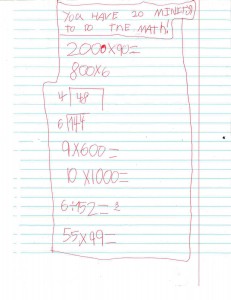 YOU HAVE 20 MINETS
TO DO THE MATH
2000X90=
800X6
4 48
6 144
9X600=
10 X1000=
6÷152=
55X49=